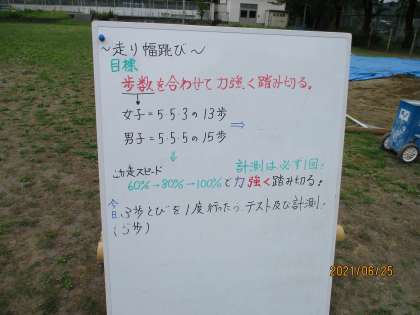 ～走り幅跳び～
目標
歩数を合わせて力強く踏み切る。
女子＝5・5・3の13歩
男子＝5・5・5の15歩 ⇒
↓
助走スピード 計測は必ず1回!
60%→80%→100%で力強く踏み切る!
今日、3歩とびを1度行ったらテスト及び計測!
(5歩)
2021/06/25